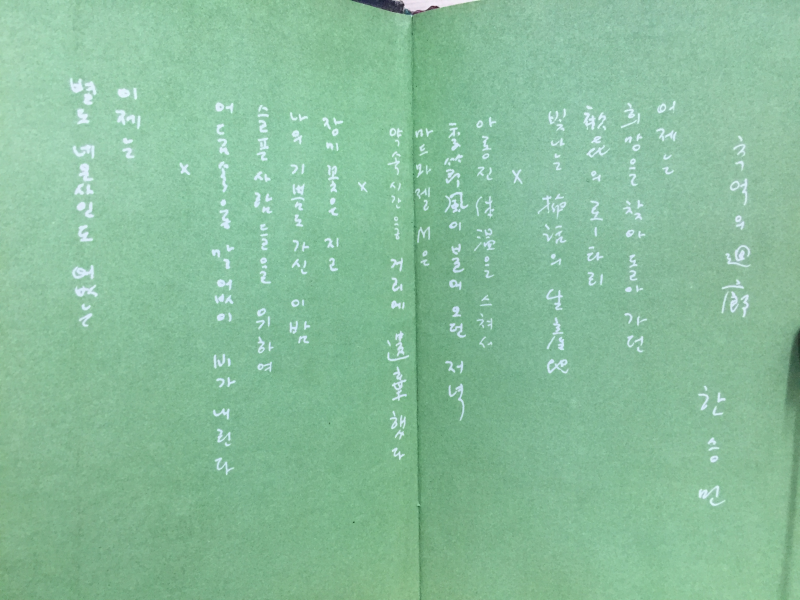 추억의 廻廊
한승먼
어제는
희망을 찾아 돌아 가던
歡喜의 로ー타리
빛나는 揷話의 날
×
아롱진 体溫을 스쳐서
風이 불어 오던 저녁
마드와젤 M은
약속시간을 거리에 遺棄했다
×
장미꽃은 지고
나의 기쁨도 가신 이밤
슬픈 사람들을 위하여
어둠속을 말없이 비가 내린다
×
이제는
별도 네온싸인도 없는